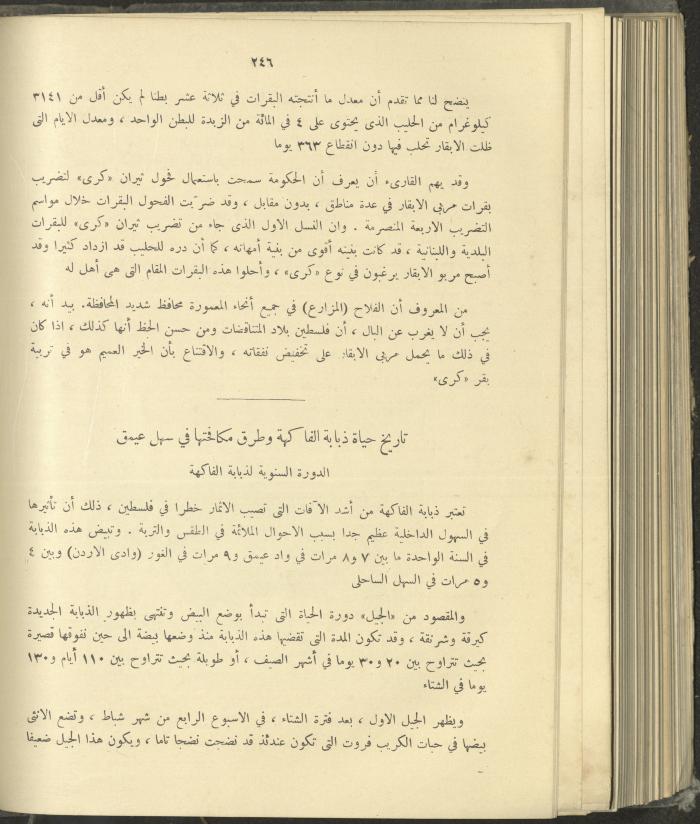 ٢٤٦
يتضح لنا مما تقدم أن معدل ما أنتجته البقرات في ثلاثة عشر بطنا لم يكن أقل من ٣١٤١
كيلوغرام من الحليب الذى يحتوى على ٤ في المائة من الزبدة للبطن الواحد ، ومعدل الايام التى
ظلت الابقار تحلب فيها دون انقطاع ٣٦٣ يوما
وقد يهم القارىء أن يعرف أن الحكومة سمحت باستعمال فحول ثيران «كرى» لتضريب
بقرات مربى الابقار في عدة مناطق ، بدون مقابل ، وقد ضربت الفحول البقرات خلال مواسم
التضريب الاربعة المنصرمة . وان النسل الاول الذى جاء من تضريب ثيران «كرى» للبقرات
البلدية واللبنانية ، قد كانت بنيته أقوى من بنية أمهاته ، كما أن دره للحليب قد ازداد كثيرا وقد
أصبح مربو الابقار يرغبون في نوع «كرى» ، وأحلوا هذه البقرات المقام التى هى أهل له
من المعروف أن الفلاح (المزارع) في جميع أنحاء المعمورة محافظ شديد المحافظة. بيد أنه ،
يجب أن لا يغرب عن البال ، أن فلسطين بلاد المتناقضات ومن حسن الحظ أنها كذلك ، اذا كان
في ذلك ما يحمل مربى الابقار على تخفيض نفقاته ، والاقتناع بأن الخير العميم هو في تربية
بقر «كرى»
تاريخ حياة ذبابة الفاكهة وطرق مكافحتها في سهل عيمق
الدورة السنوية لذبابة الفاكهة
تعتبر ذبابة الفاكهة من أشد الآفات التى تصيب الاثمار خطرا في فلسطين ، ذلك أن تأثيرها
في السهول الداخلية عظيم جدا بسبب الاحوال الملائمة في الطقس والتربة . وتبيض هذه الذبابة
في السنة الواحدة ما بين ٧ و٨ مرات في واد عيمق و٩ مرات في الغور (وادى الاردن) وبين ٤
و٥ مرات في السهل الساحلى
والمقصود من «الجيل» دورة الحياة التى تبدأ بوضع البيض وتنتهى بظهور الذبابة الجديدة
كيرقة وشرنقة ، وقد تكون المدة التى تقضيها هذه الذبابة منذ وضعها بيضة الى حين نفوقها قصيرة
بحيث تتراوح بين ٢٠ و٣٠ يوما في أشهر الصيف ، أو طويلة بحيث تتراوح بين ١١٠ أيام و١٣٠
يوما في الشتاء
ويظهر الجيل الاول ، بعد فترة الشتاء ، في الاسبوع الرابع من شهر شباط ، وتضع الانثى
بيضها في حبات الكريب فروت التى تكون عندئذ قد نضجت نضجا تاما ، ويكون هذا الجيل ضعيفا